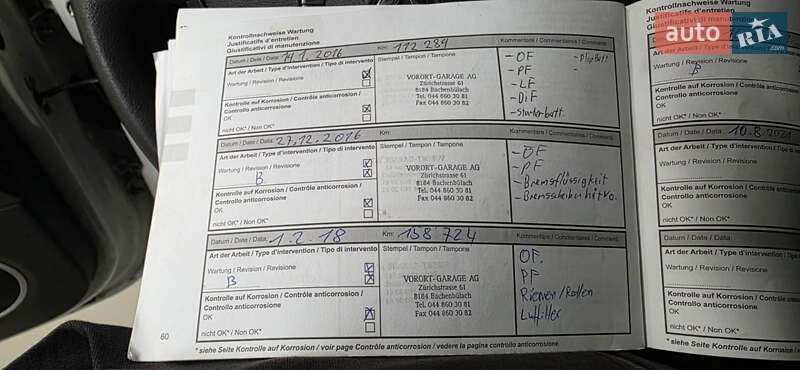 Kontrollnachweise Wartung
Justificatifs d'entretien
Giustificativi di manutenzione
Datum / Date / Data: 14.1.2016 Km: 112 289 Kommentare / Commentaires / Commenti
Art der Arbeit / Type d'intervention / Tipo di intervento Stempel / Tampon / Tampone - OF
Wartung / Revision / Revisione VORORT-GARAGE AG - PF
Zürichstrasse 61 - LF
8184 Bachenbülach - DiF
Kontrolle auf Korrosion / Contrôle anticorrosion / Tel. 044 860 30 81 - Starterbatt.
Controllo anticorrosione Fax 044 860 30 82
OK
nicht OK* / Non OK*
Datum / Date / Data: 27.12.2016 Km: Kommentare / Commentaires / Commenti
Art der Arbeit / Type d'intervention / Tipo di intervento Stempel / Tampon / Tampone - OF
Wartung / Revision / Revisione VORORT-GARAGE AG - PF
B Zürichstrasse 61 - Bremsflüssigkeit
Kontrolle auf Korrosion / Contrôle anticorrosion / 8184 Bachenbülach - Bremsscheiben h+kro.
Controllo anticorrosione Tel. 044 860 30 81
OK Fax 044 860 30 82
nicht OK* / Non OK*
Datum / Date / Data: 1.2.18 Km: 158 724 Kommentare / Commentaires / Commenti
Art der Arbeit / Type d'intervention / Tipo di intervento Stempel / Tampon / Tampone OF.
Wartung / Revision / Revisione PF
B VORORT-GARAGE AG Riemen/Rollen
Kontrolle auf Korrosion / Contrôle anticorrosion / Zürichstrasse 61 Luftfilter
Controllo anticorrosione 8184 Bachenbülach
OK Tel. 044 860 30 81
Fax 044 860 30 82
nicht OK* / Non OK*
60
* siehe Seite Kontrolle auf Korrosion / voir page Contrôle anticorrosion / vedere la pagina controllo anticorrosione
Kontrollnachweise Wartung
Justificatifs d'entretien
Giustificativi di manutenzione
Datum / Date / Data:
Art der Arbeit / Type
Wartung / Revision / Revisione
B
Kontrolle auf Korrosion
Controllo anticorrosione
OK
nicht OK* / Non OK*
Datum / Date / Data: 10.8.2021
Art der Arbeit / Type d'inter
Wartung / Revision / Revisione
Kontrolle auf Korrosion / C
Controllo anticorrosione
OK
nicht OK* / Non OK*
Datum / Date / Data:
Art der Arbeit / Type d'interv
Wartung / Revision / Revisione
Kontrolle auf Korrosion / Co
Controllo anticorrosione
OK
nicht OK* / Non OK*
* siehe Seite Kontrolle
auto RIA .com